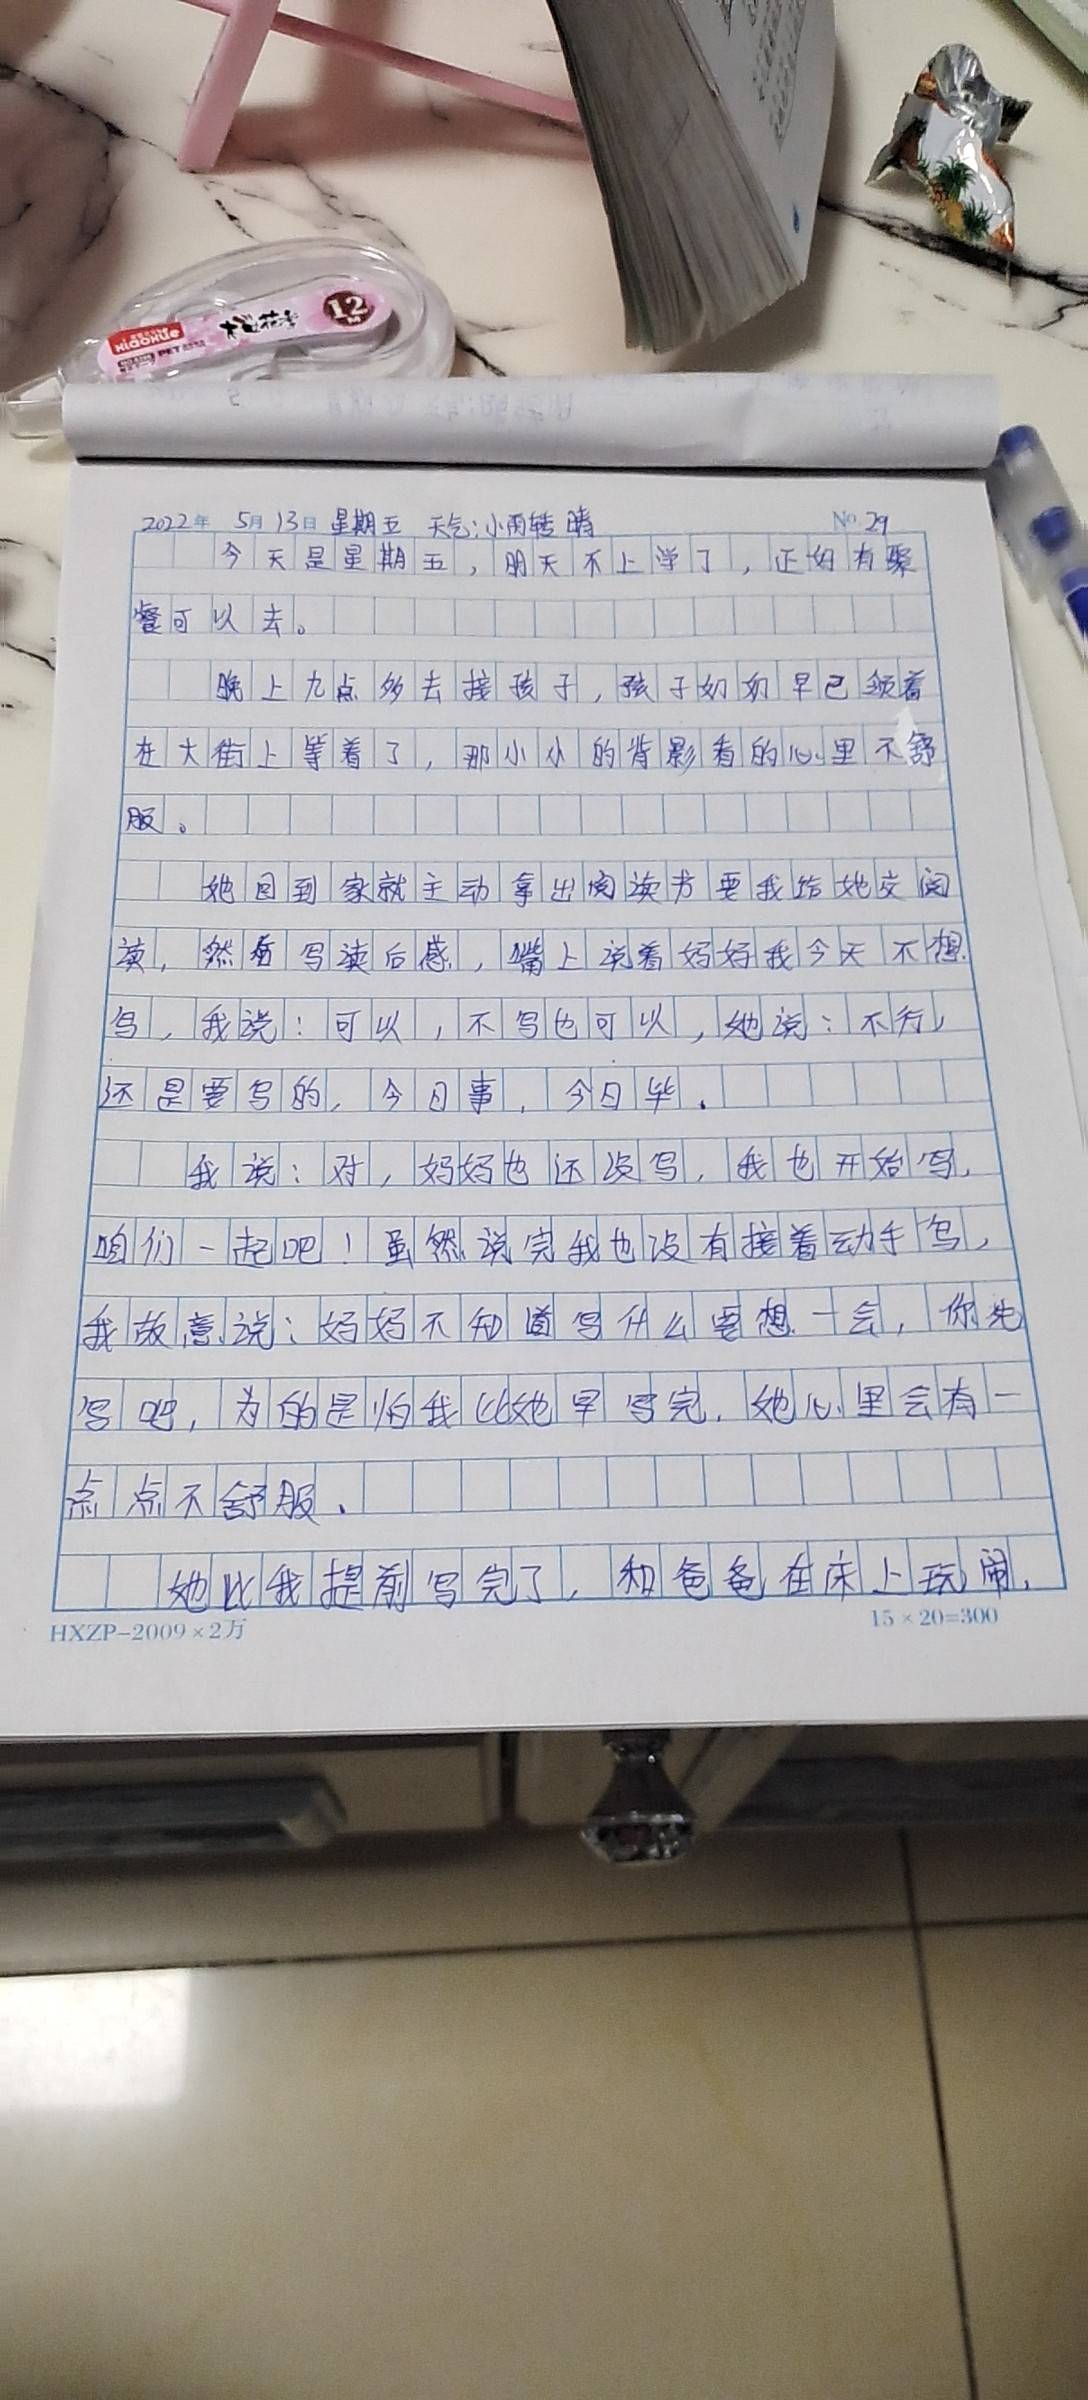 xiaoxue
12
M
2022年 5月13日 星期五 天气:小雨转晴 No.29
今天是星期五,明天不上学了,正好有聚
餐可以去。
晚上九点多去接孩子,孩子奶奶早已领着
在大街上等着了,那小小的背影看的心里不舒
服。
她回到家就主动拿出阅读书要我给她交阅
读,然后写读后感,嘴上说着妈妈我今天不想
写,我说:可以,不写也可以,她说:不行,
还是要写的,今日事,今日毕.
我说:对,妈妈也还没写,我也开始写,
咱们一起吧!虽然说完我也没有接着动手写,
我故意说:妈妈不知道写什么要想一会,你先
写吧,为的是怕我比她早写完.她心里会有一
点点不舒服.
她比我提前写完了,和爸爸在床上玩闹,
HXZP-2009×2万 15×20=300